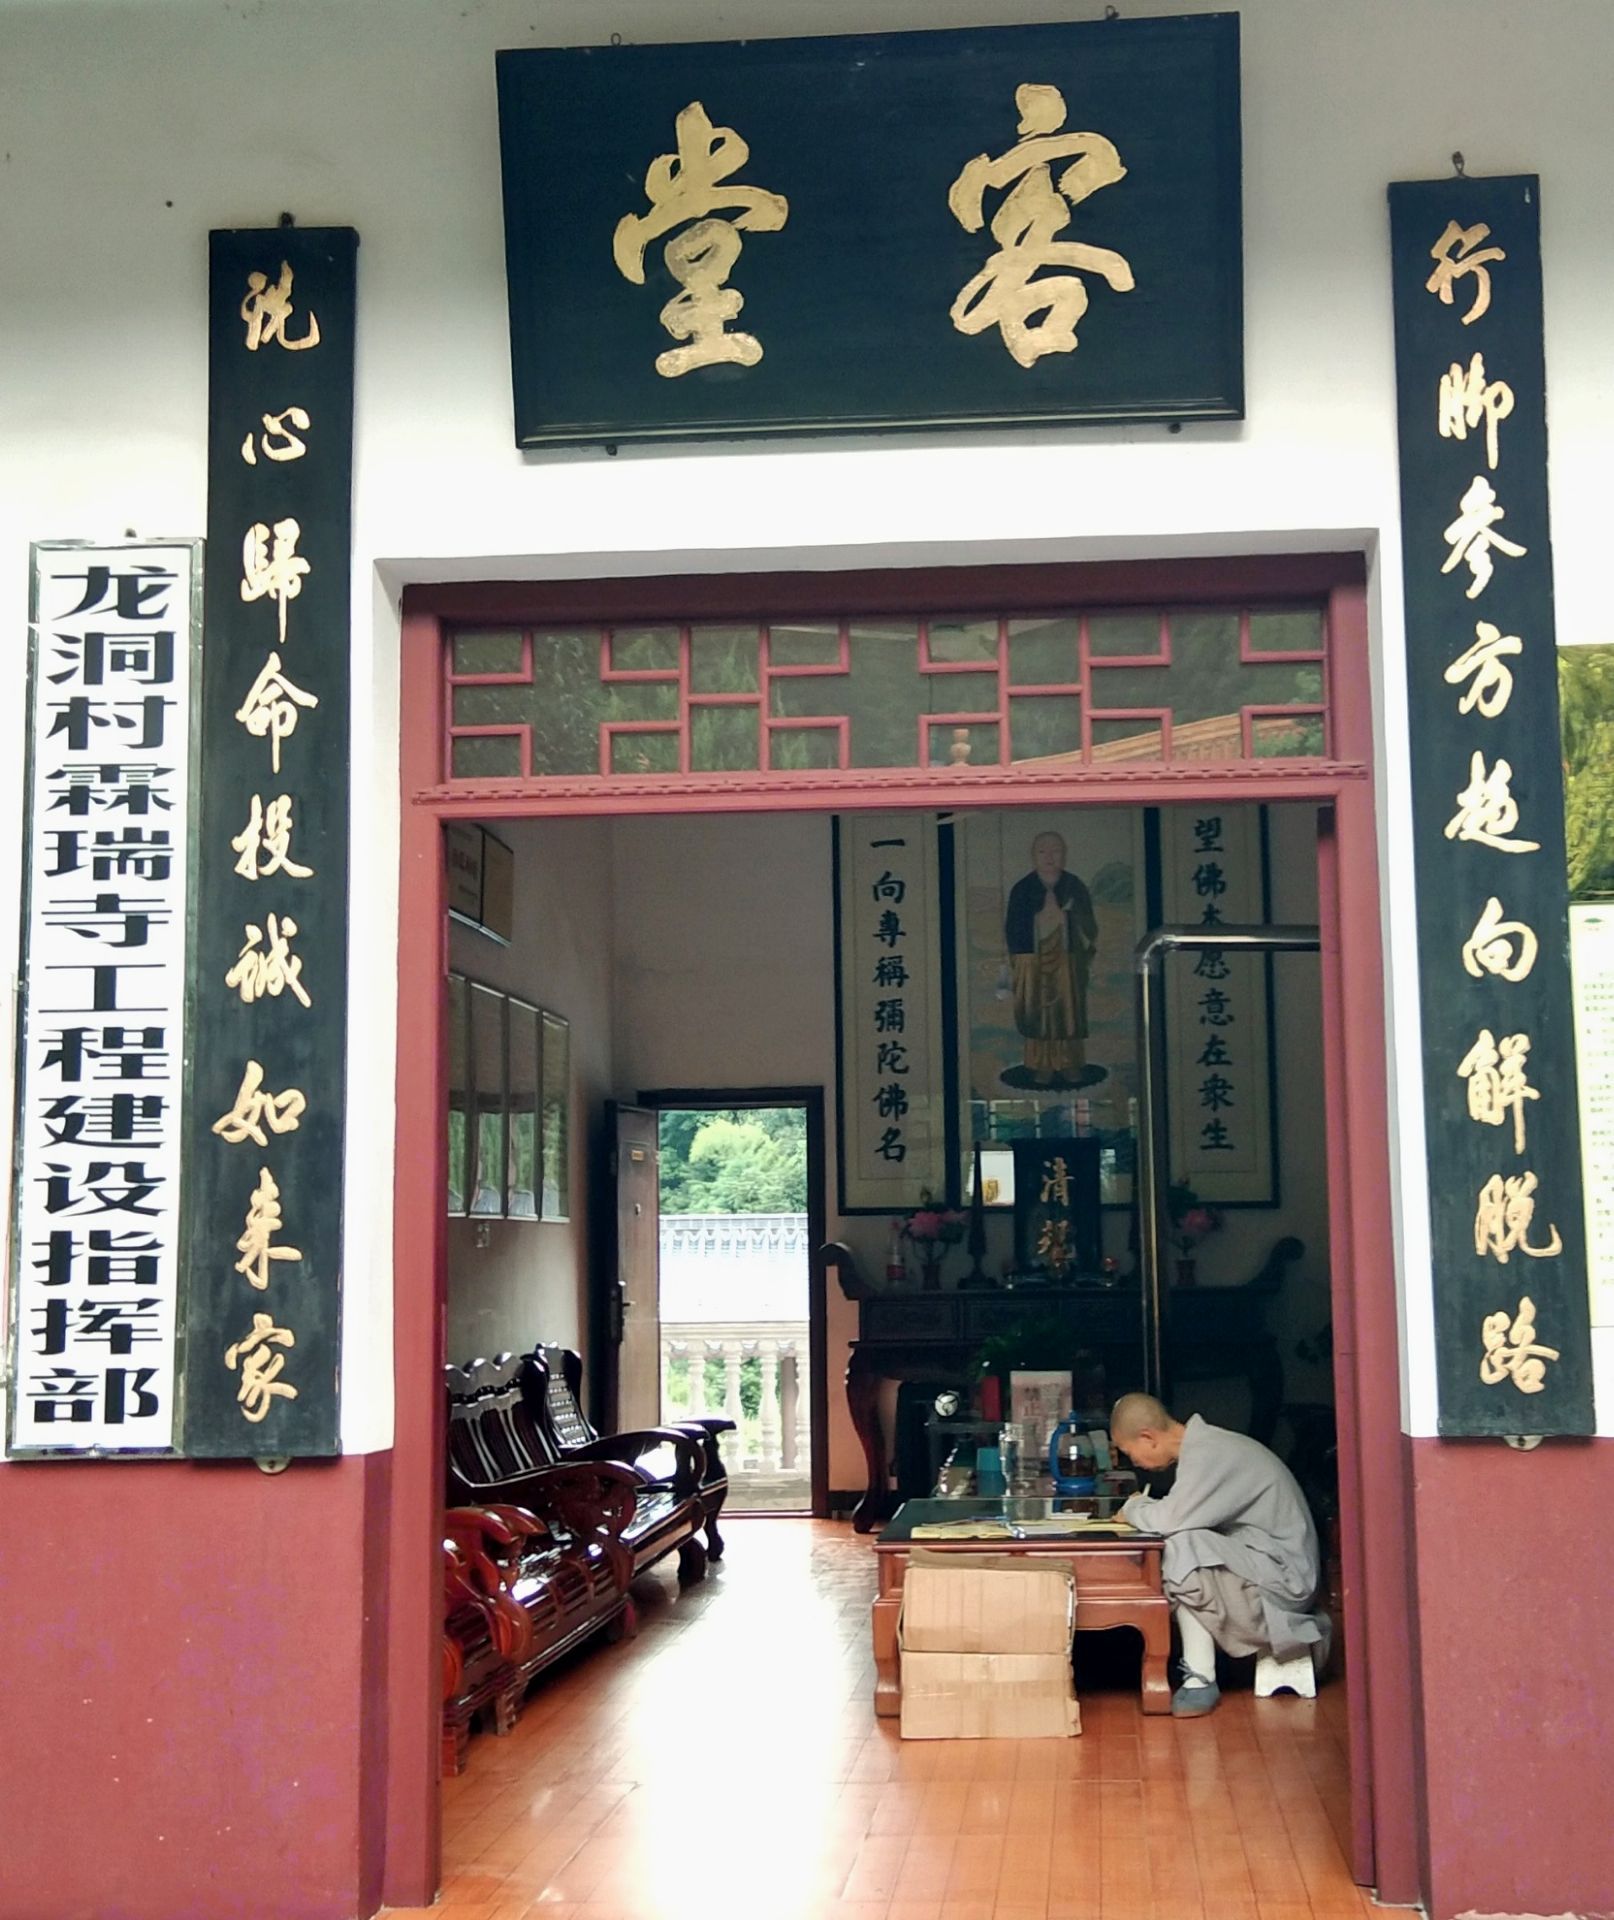 客堂
行脚參方趋向解脱路
洗心歸命投誠如来家
龙洞村霖瑞寺工程建设指挥部
望佛本愿意在衆生
一向專稱彌陀佛名
清規
禁止